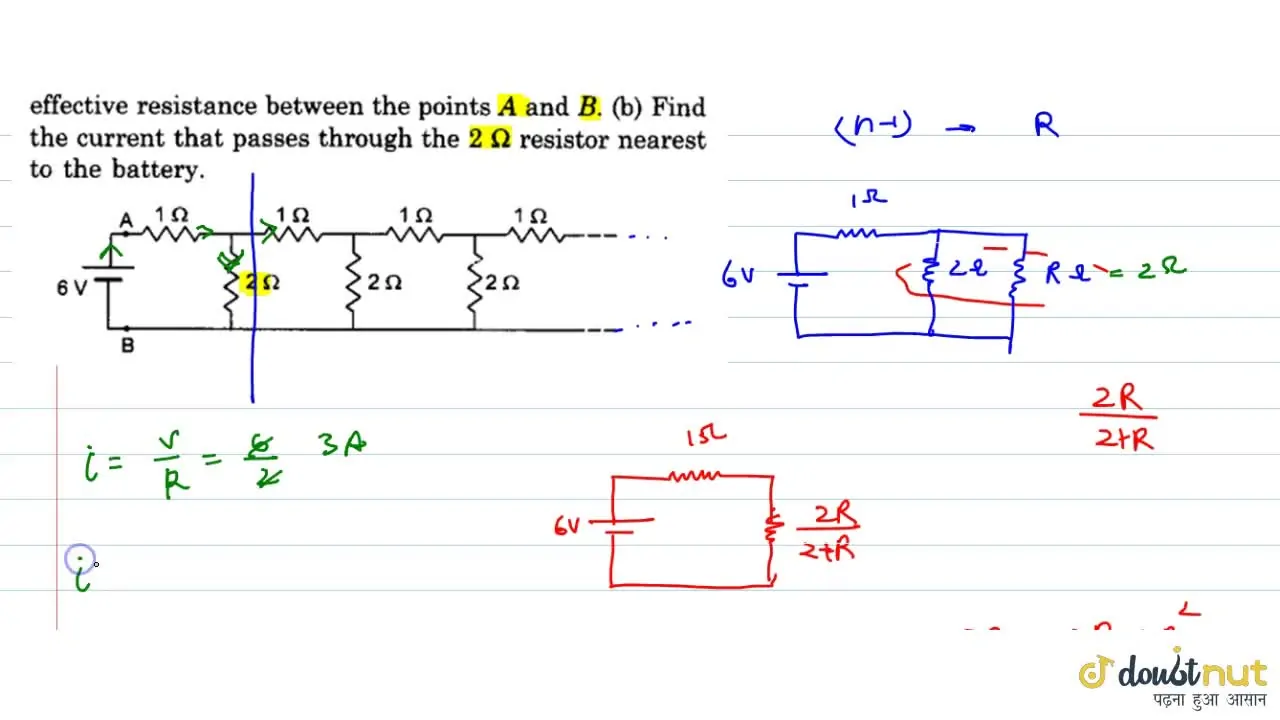 effective resistance between the points A and B. (b) Find
the current that passes through the 2 Ω resistor nearest
to the battery.
(n-1) → R
A 1 Ω 1 Ω 1 Ω 1 Ω
6 V 2 Ω 2 Ω 2 Ω
B
1Ω
6V 2Ω RΩ = 2Ω
2R
2+R
i = V/R = 6/2 3A
1Ω
6V 2R/2+R
i
doubtnut
पढ़ना हुआ आसान